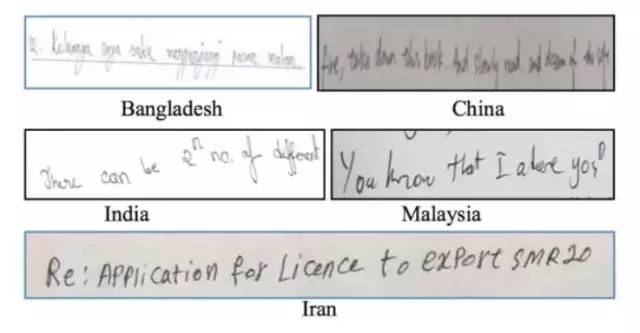 Keluarga saya suka mengunjungi pasar malam
fire, take down this book And slowly read and dream of the
Bangladesh
China
There can be 2ⁿ no. of different
You know that I adore you
India
Malaysia
Re: APPlication for Licence to exPort SMR20
Iran